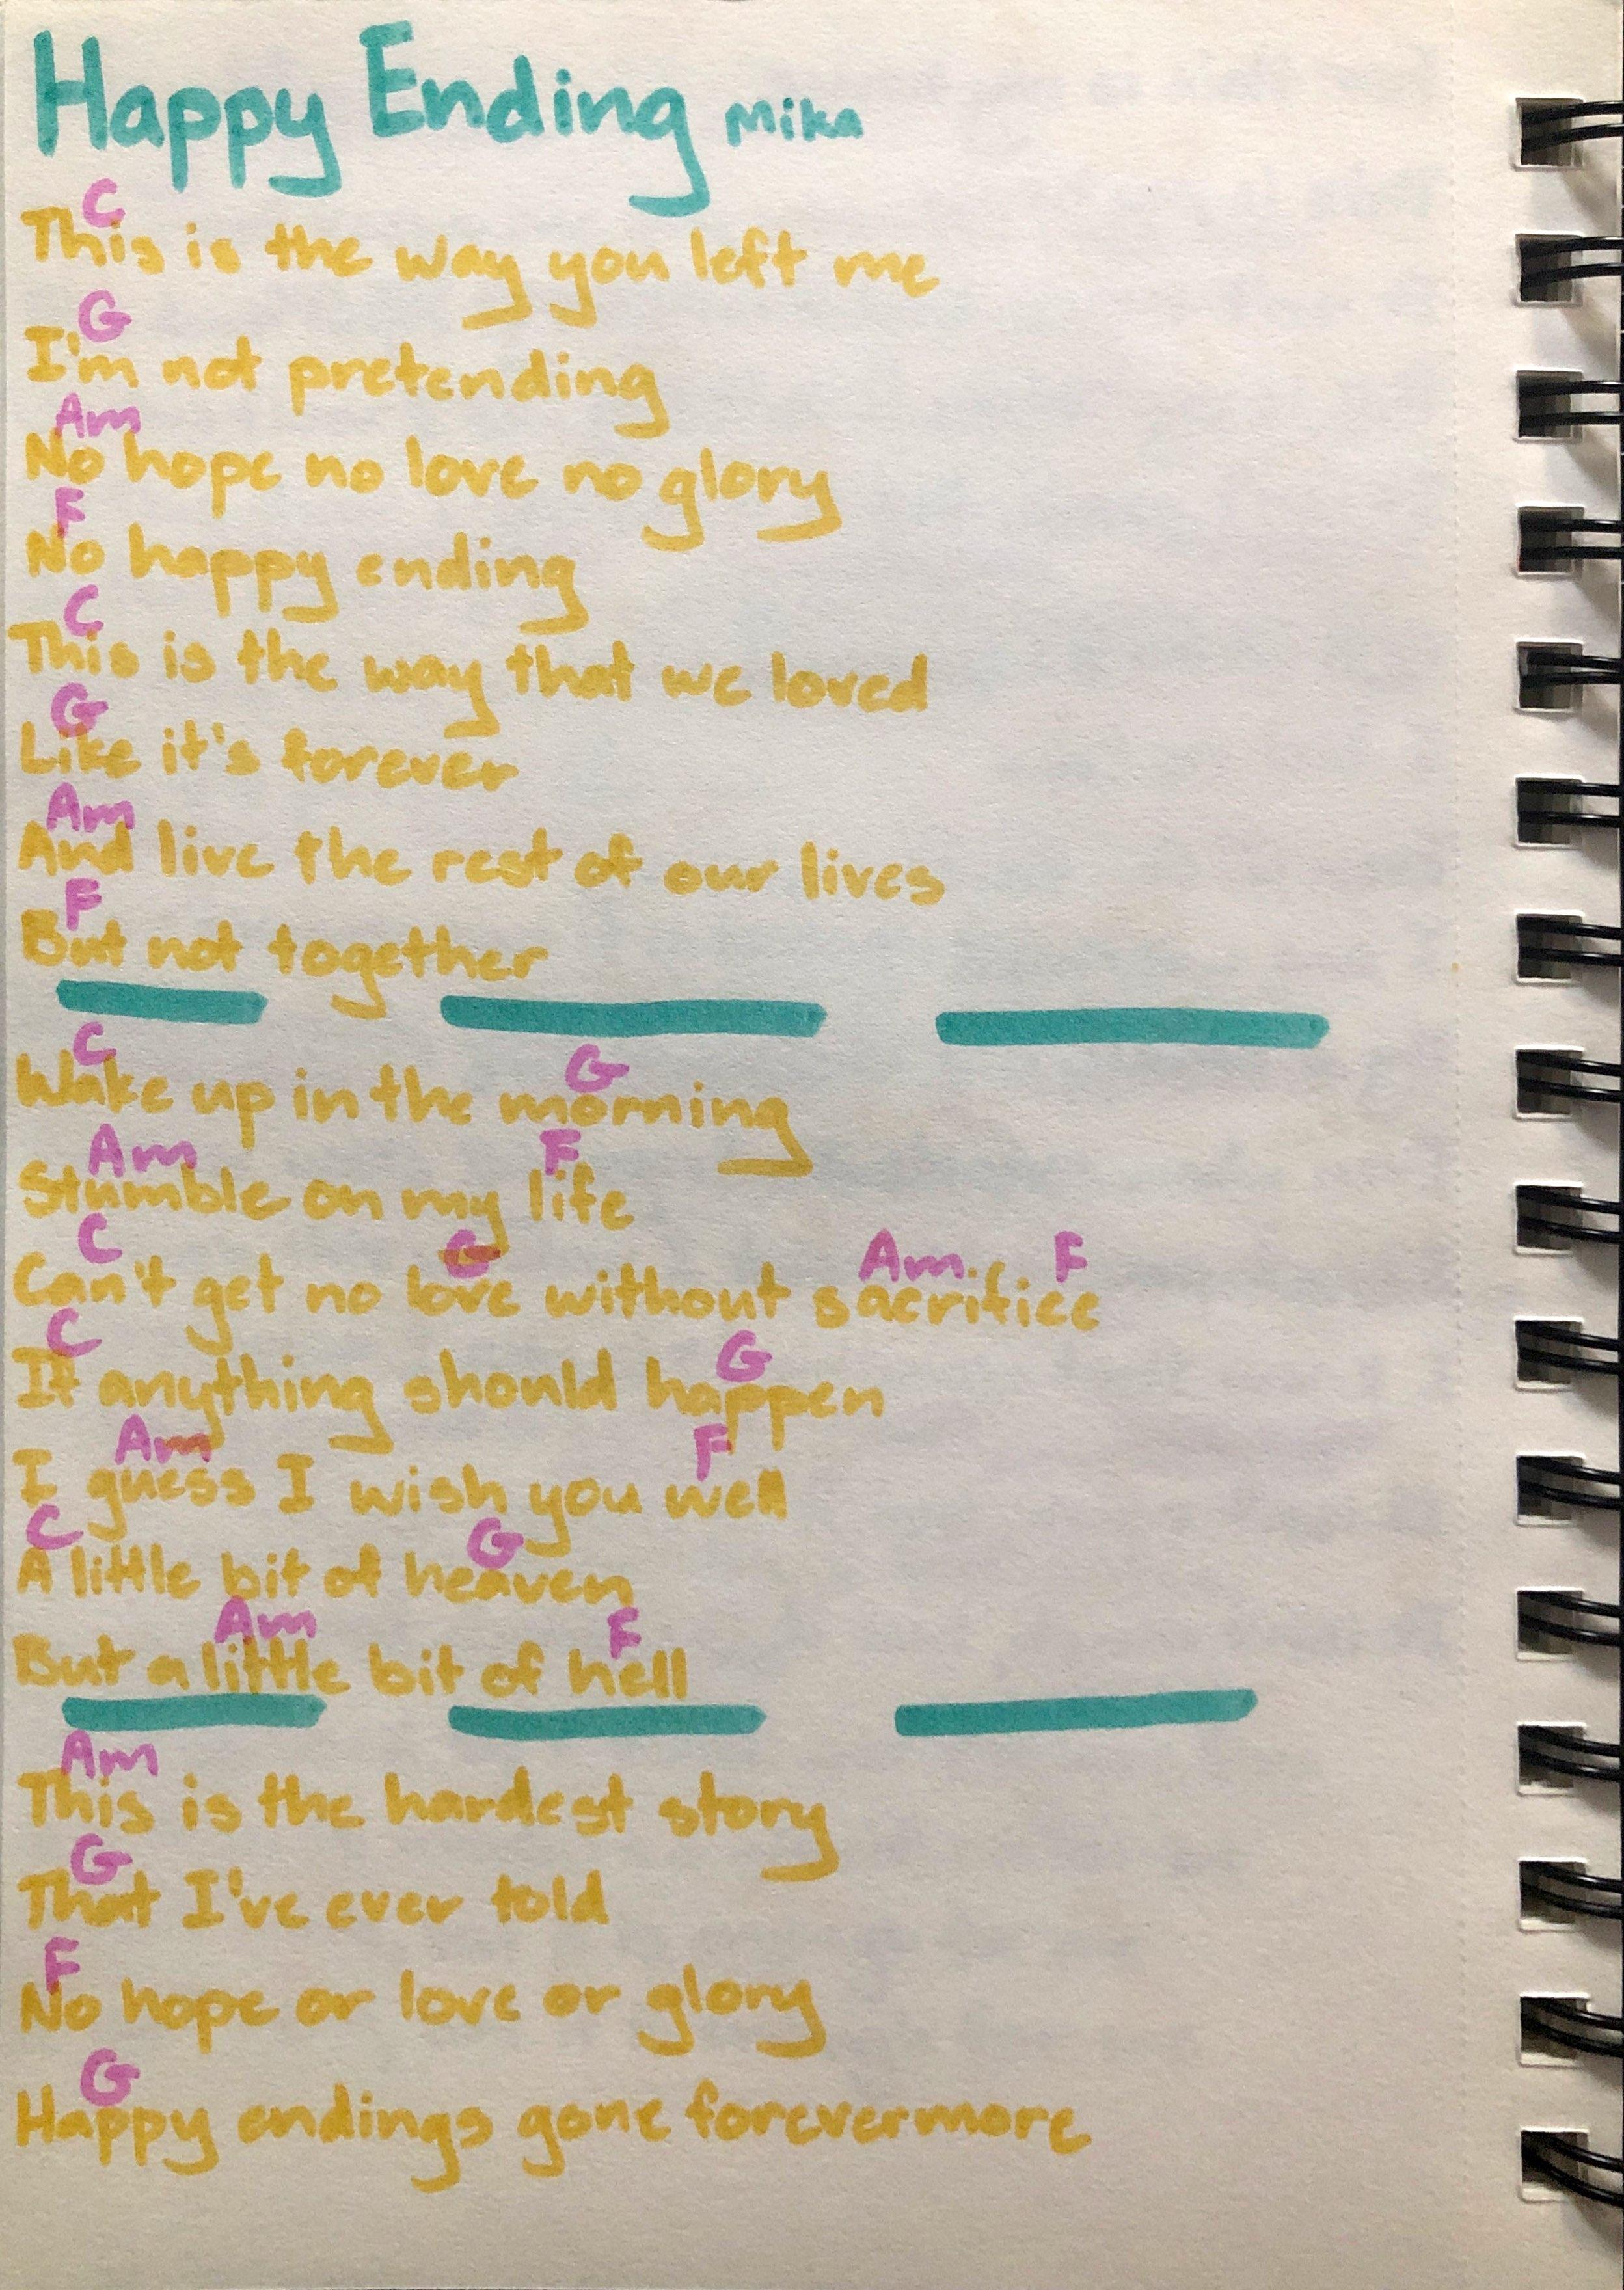 Happy Ending Mika
C
This is the way you left me
G
I'm not pretending
Am
No hope no love no glory
F
No happy ending
C
This is the way that we loved
G
Like it's forever
Am
And live the rest of our lives
F
But not together
C G
Wake up in the morning
Am F
Stumble on my life
C G Am F
Can't get no love without sacrifice
C G
If anything should happen
Am F
I guess I wish you well
C G
A little bit of heaven
Am F
But a little bit of hell
Am
This is the hardest story
G
That I've ever told
F
No hope or love or glory
G
Happy endings gone forevermore